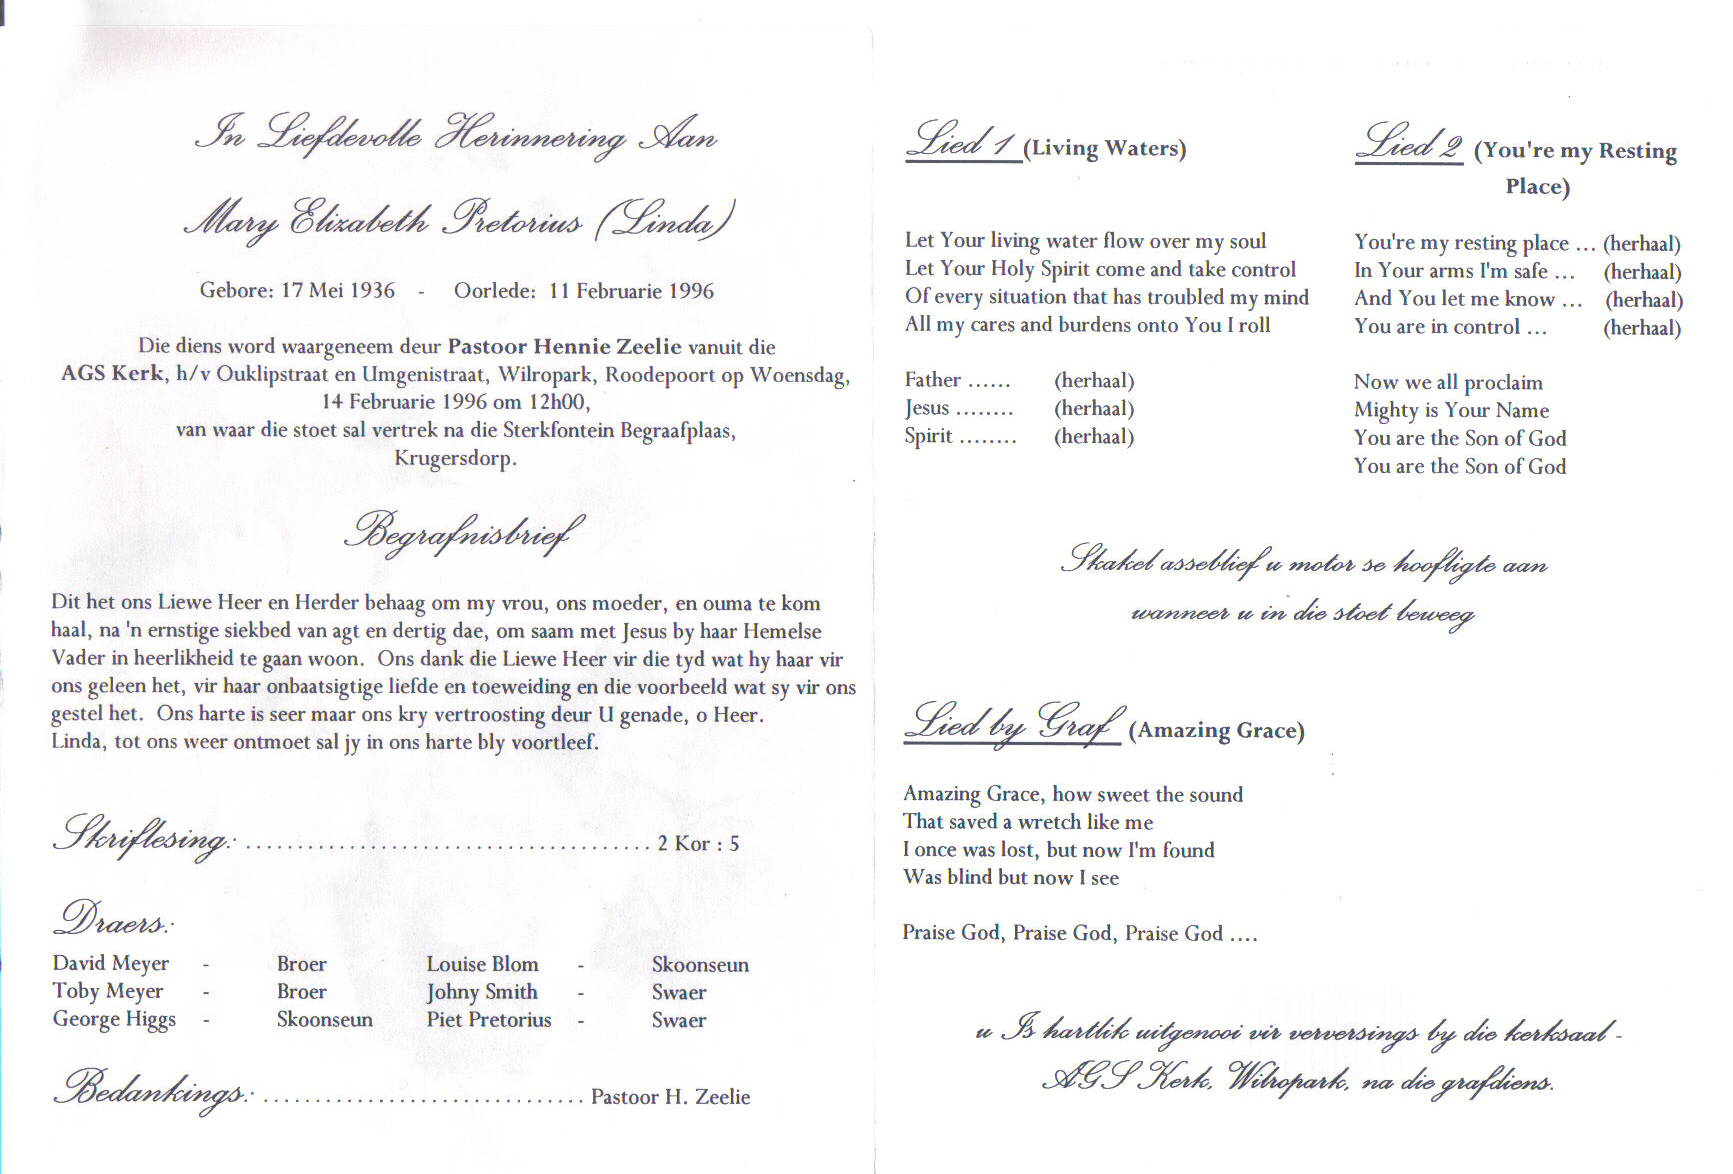 In Liefdevolle Herinnering Aan
Mary Elizabeth Pretorius (Linda)
Gebore: 17 Mei 1936 - Oorlede: 11 Februarie 1996
Die diens word waargeneem deur Pastoor Hennie Zeelie vanuit die
AGS Kerk, h/v Ouklipstraat en Umgenistraat, Wilropark, Roodepoort op Woensdag,
14 Februarie 1996 om 12h00,
van waar die stoet sal vertrek na die Sterkfontein Begraafplaas,
Krugersdorp.
Begrafnisbrief
Dit het ons Liewe Heer en Herder behaag om my vrou, ons moeder, en ouma te kom
haal, na 'n ernstige siekbed van agt en dertig dae, om saam met Jesus by haar Hemelse
Vader in heerlikheid te gaan woon. Ons dank die Liewe Heer vir die tyd wat hy haar vir
ons geleen het, vir haar onbaatsigtige liefde en toeweiding en die voorbeeld wat sy vir ons
gestel het. Ons harte is seer maar ons kry vertroosting deur U genade, o Heer.
Linda, tot ons weer ontmoet sal jy in ons harte bly voortleef.
Skriflesing: ....................................... 2 Kor : 5
Draers:
David Meyer - Broer Louise Blom - Skoonseun
Toby Meyer - Broer Johny Smith - Swaer
George Higgs - Skoonseun Piet Pretorius - Swaer
Bedankings: ............................... Pastoor H. Zeelie
Lied 1 (Living Waters)
Let Your living water flow over my soul
Let Your Holy Spirit come and take control
Of every situation that has troubled my mind
All my cares and burdens onto You I roll
Father ...... (herhaal)
Jesus ........ (herhaal)
Spirit ........ (herhaal)
Lied 2 (You're my Resting
Place)
You're my resting place ... (herhaal)
In Your arms I'm safe ... (herhaal)
And You let me know ... (herhaal)
You are in control ... (herhaal)
Now we all proclaim
Mighty is Your Name
You are the Son of God
You are the Son of God
Skakel asseblief u motor se hoofligte aan
wanneer u in die stoet beweeg
Lied by Graf (Amazing Grace)
Amazing Grace, how sweet the sound
That saved a wretch like me
I once was lost, but now I'm found
Was blind but now I see
Praise God, Praise God, Praise God ....
u Is hartlik uitgenooi vir verversings by die kerksaal -
AGS Kerk, Wilropark, na die grafdiens.